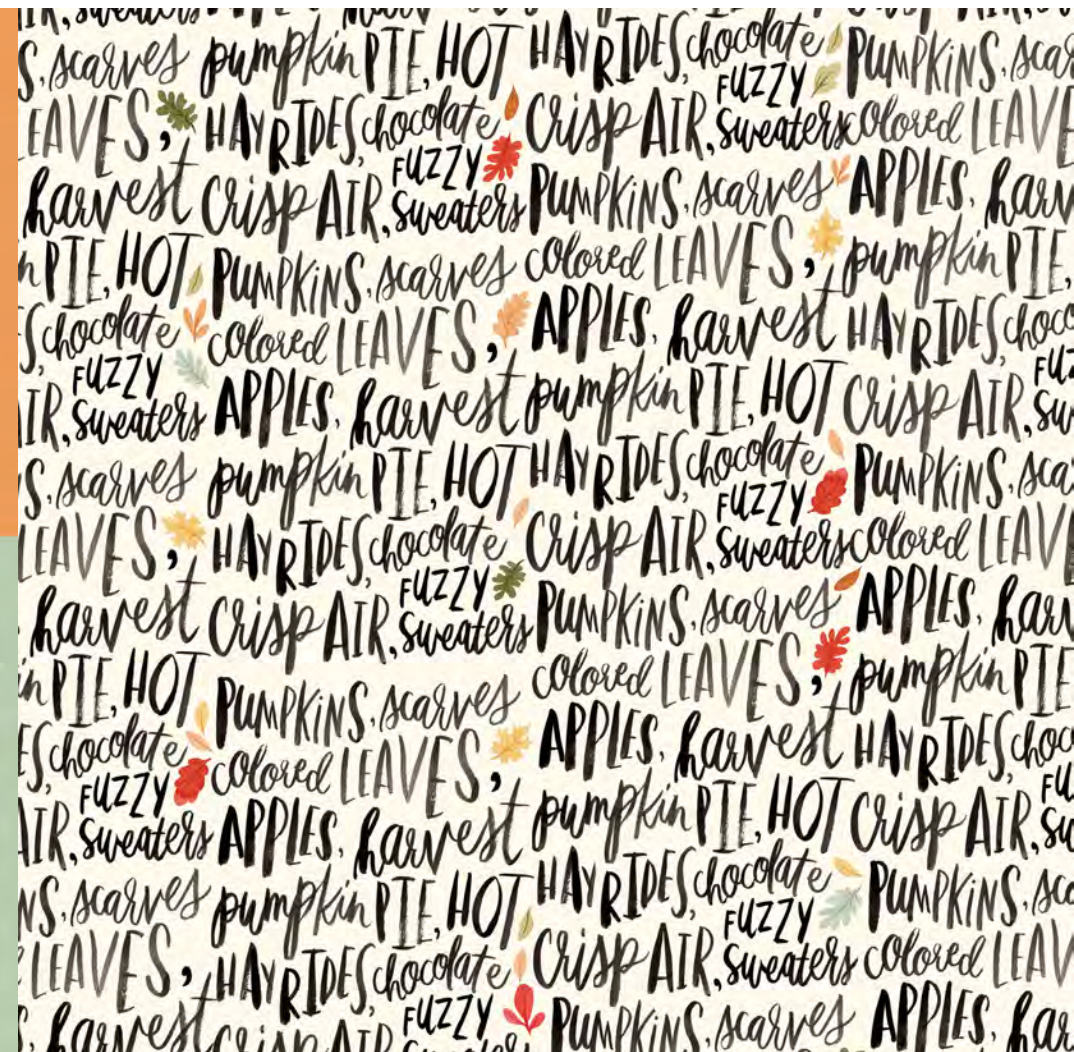 scarves pumpkin PIE, HOT HAYRIDES, chocolate PUMPKINS, scar
FUZZY
EAVES, HAYRIDES, chocolate CRisp AIR, sweaters colored LEAVE
FUZZY
harvest CRisp AIR, sweaters PUMPKiNS, scarves APPLES, harv
n PIE, HOT PUMPKiNS, scarves colored LEAVES, pumpkin PIE,
S, chocolate colored LEAVES, APPLES, harvest HAYRIDES, choco
FUZZY
IR, sweaters APPLES, harvest pumpkin PIE, HOT CRisp AIR, sw
S, scarves pumpkin PIE, HOT HAYRIDES, chocolate PUMPKiNS, sca
FUZZY
LEAVES, HAYRIDES, chocolate CRisp AIR, sweaters colored LEAV
FUZZY
harvest CRisp AIR, sweaters PUMPKiNS, scarves APPLES, harv
in PIE, HOT PUMPKiNS, scarves colored LEAVES, pumpkin PIE
ES, chocolate colored LEAVES, APPLES, harvest HAYRIDES, choc
FUZZY
AIR, sweaters APPLES, harvest pumpkin PIE, HOT CRisp AIR, su
NS, scarves pumpkin PIE, HOT HAYRIDES, chocolate PUMPKiNS, sca
FUZZY
LEAVES, HAYRIDES, chocolate CRisp AIR, sweaters colored LEAV
FUZZY
harvest CRisp AIR, PUMPKiNS, scarves APPLES, har